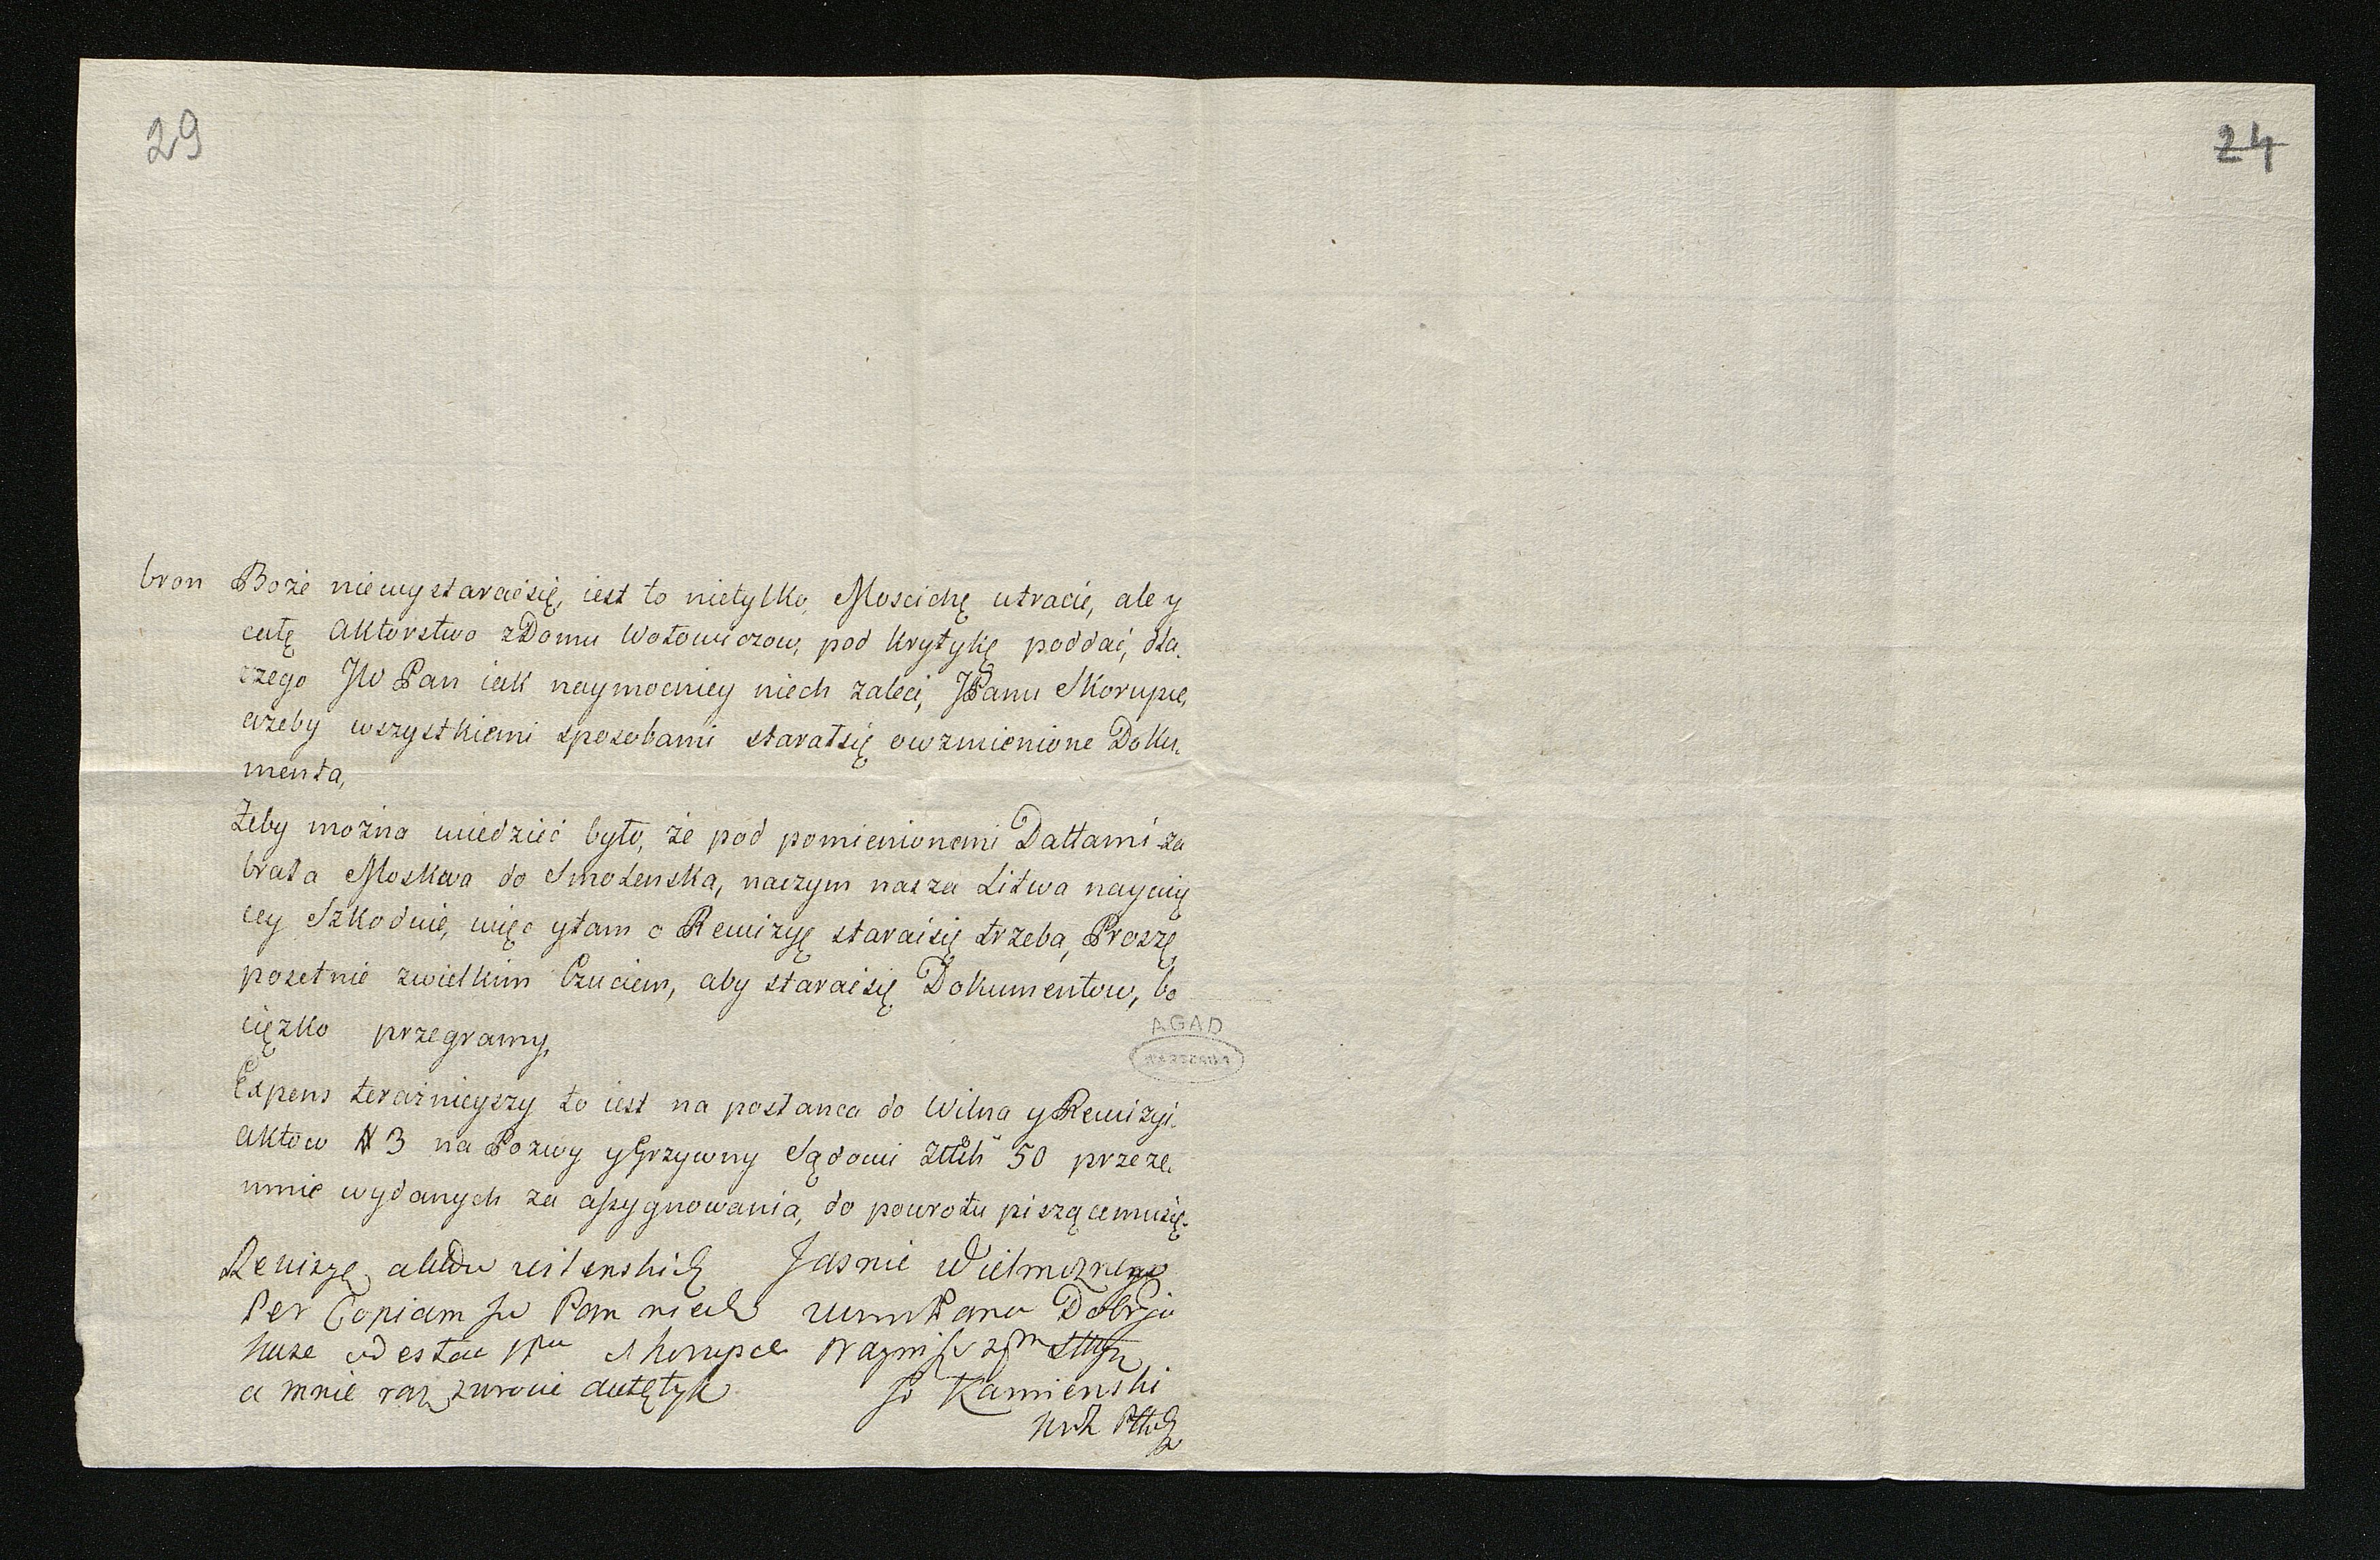 29
24
bron Boże niewystaraćsię, iest to nietylko Mościchę utracić, ale y
całę Aktorstwo zDomu Wołowiczow, pod krytykę poddać, dla
czego JW Pan iak naymocniey niech zaleci, JPanu Skorupie,
ażeby wszystkiemi sposobami starałsię owzmienione Doku-
menta,
Żeby można wiedzieć było, że pod pomienionemi Dattami za
brała Moskwa do Smoleńska, naczym nasza Litwa naywię
cey Szkoduie, więc ytam o Rewizyę staraćsię trzeba, Proszę
posełnie zwielkim Czuciem, aby staraćsię Dokumentow, bo
ciężko przegramy,
AGAD
WARSZAWA
Expens teraźnieyszy to iest na posłańca do Wilna y Rewizyi
Aktow # 3 na Pozwy yGrzywny Sądowi 50 przeze
mnie wydanych za assygnowania, do powrotu piszącemusię.
Rewizyę aktow wilenskich Jasnie Wielmoznego
Per Copiam JW Pan niech Pana Dobrja
każe odesłac JPu Skorupie
a mnie zwrocic autętyk Kamienski